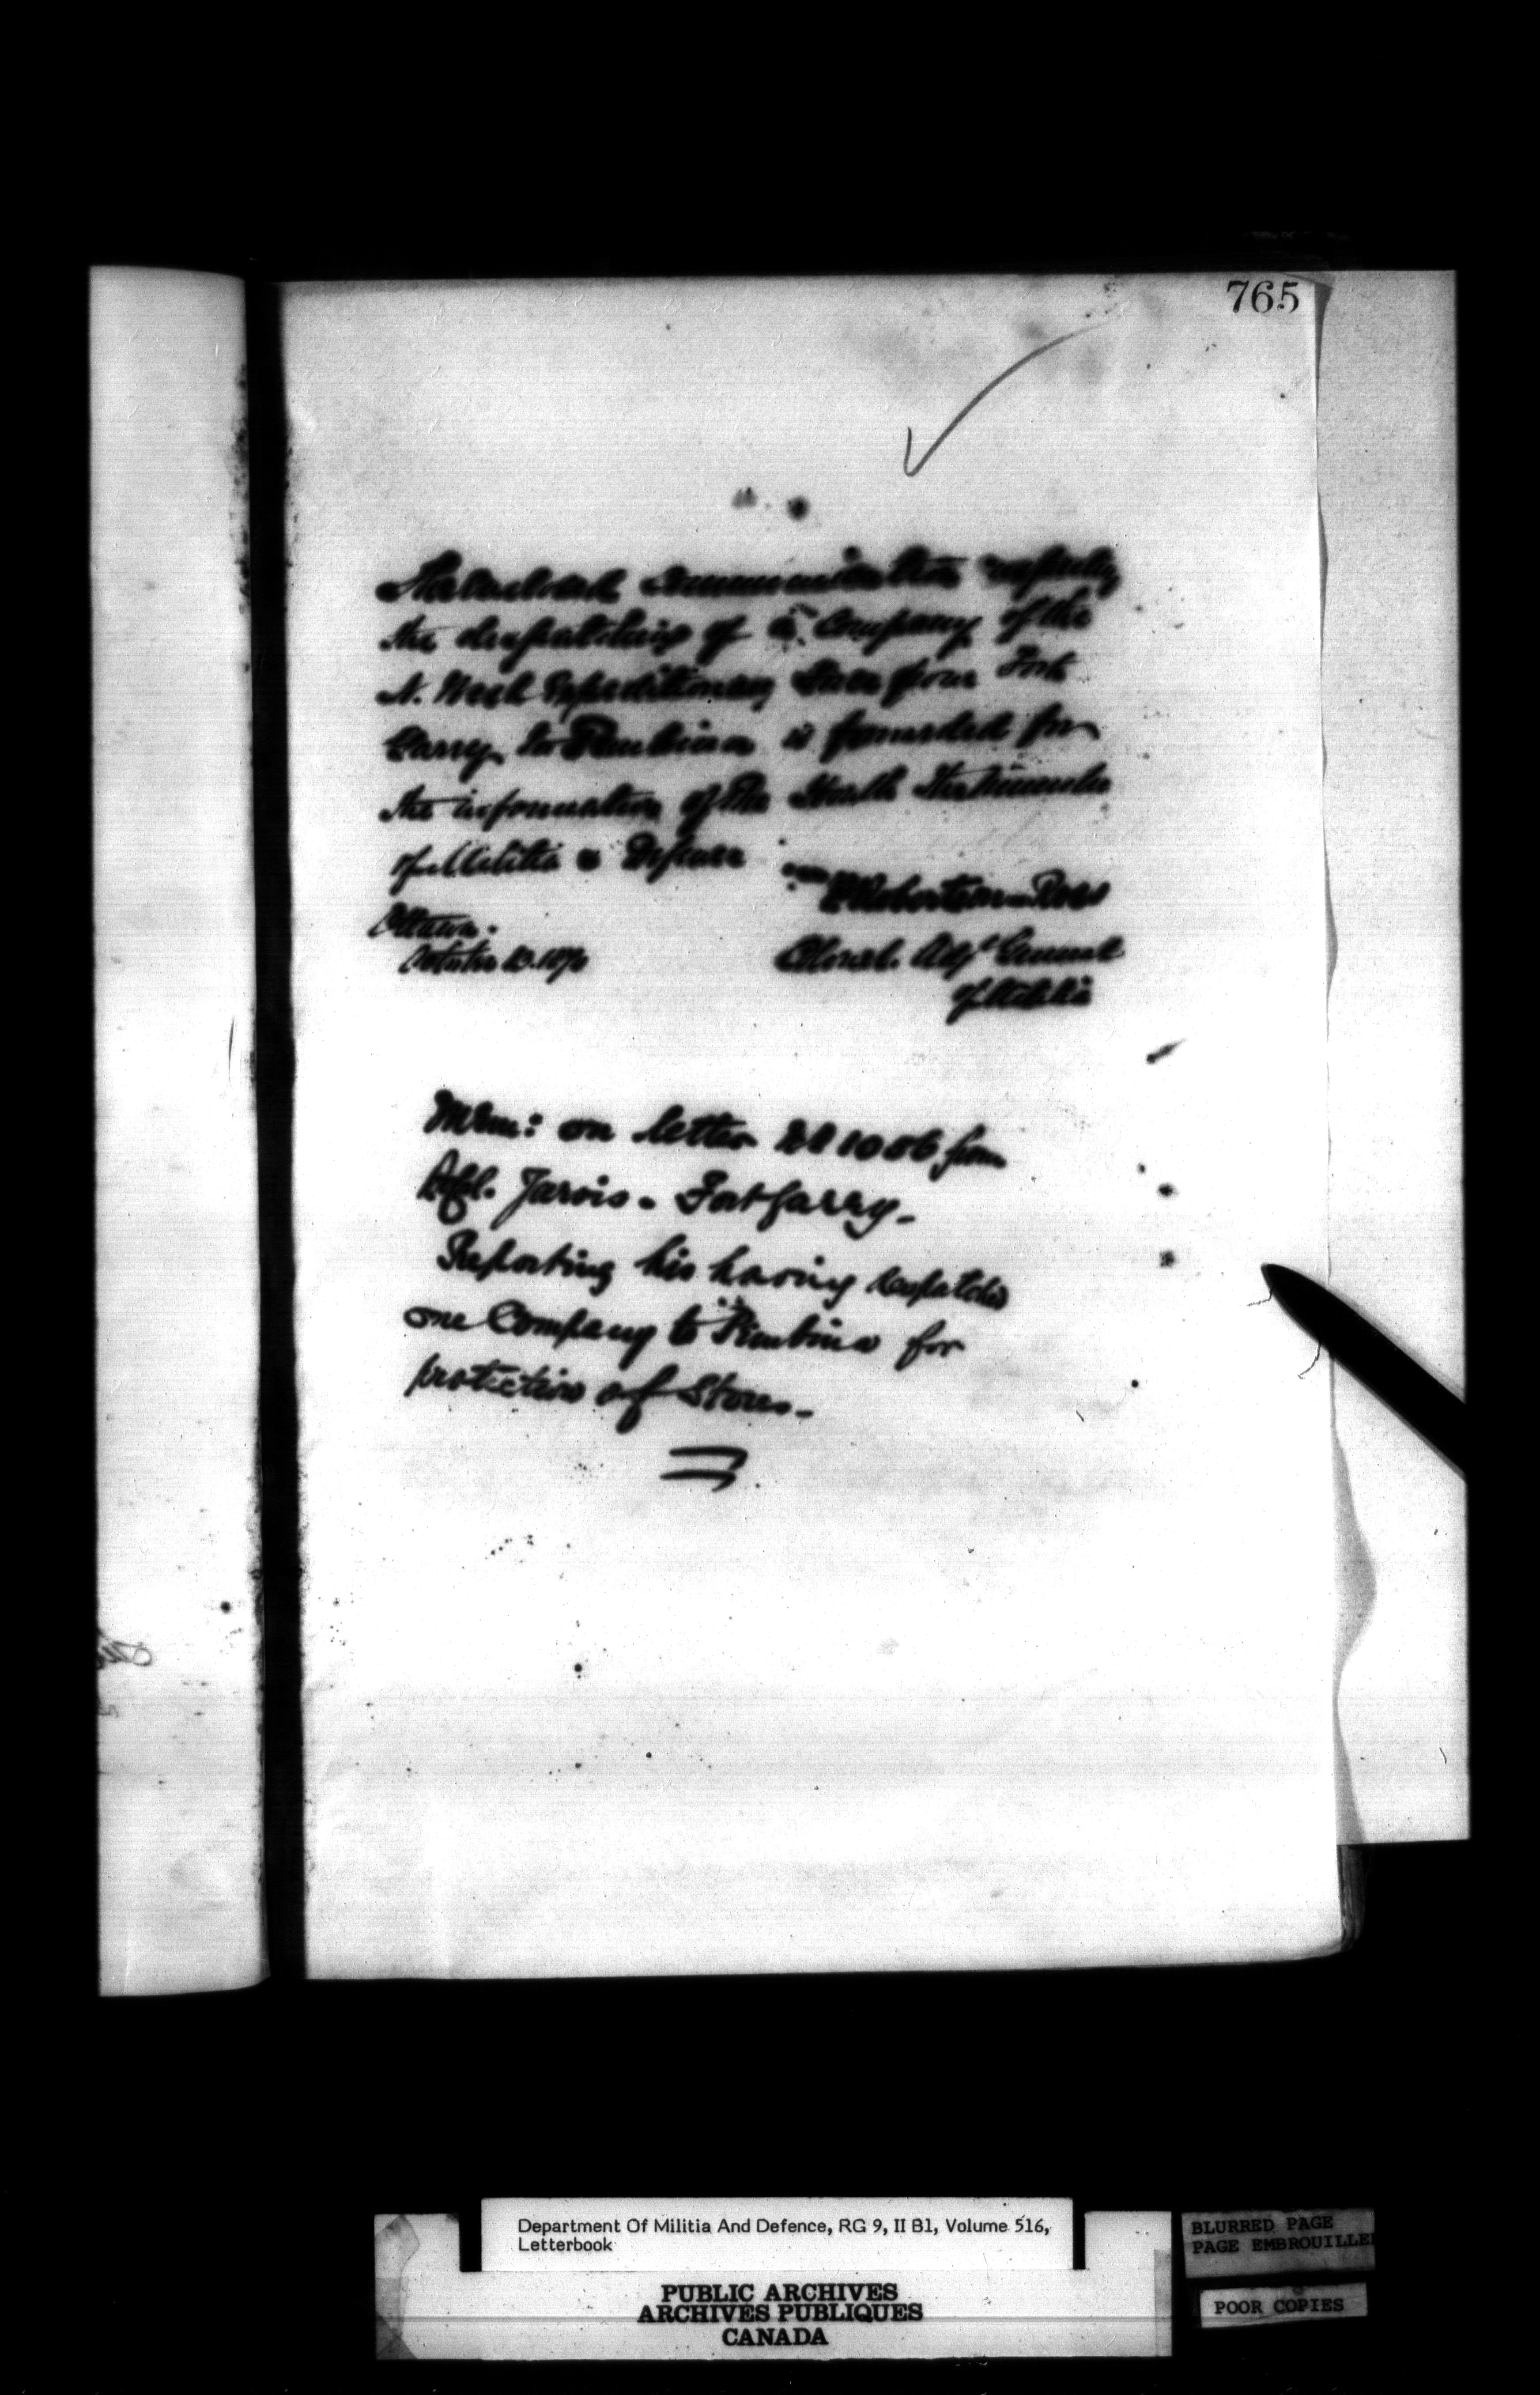 765
The enclosed communication respecting
the despatching of a Company of the
N. West Expeditionary Force from Fort
Garry to Pembina is forwarded for
the information of the Honble The Minister
of Militia & Defence
P Robertson Ross
Ottawa.
October 1870
Colonel. Adjt General
of Militia
Mem: on letter 1006 from
Col. Jarvis. Fort Garry_
Reporting his having despatched
one Company to Pembina for
protection of Stores_
Department Of Militia And Defence, RG 9, II B1, Volume 516,
Letterbook
BLURRED PAGE
PAGE EMBROUILLEE
PUBLIC ARCHIVES
ARCHIVES PUBLIQUES
CANADA
POOR COPIES